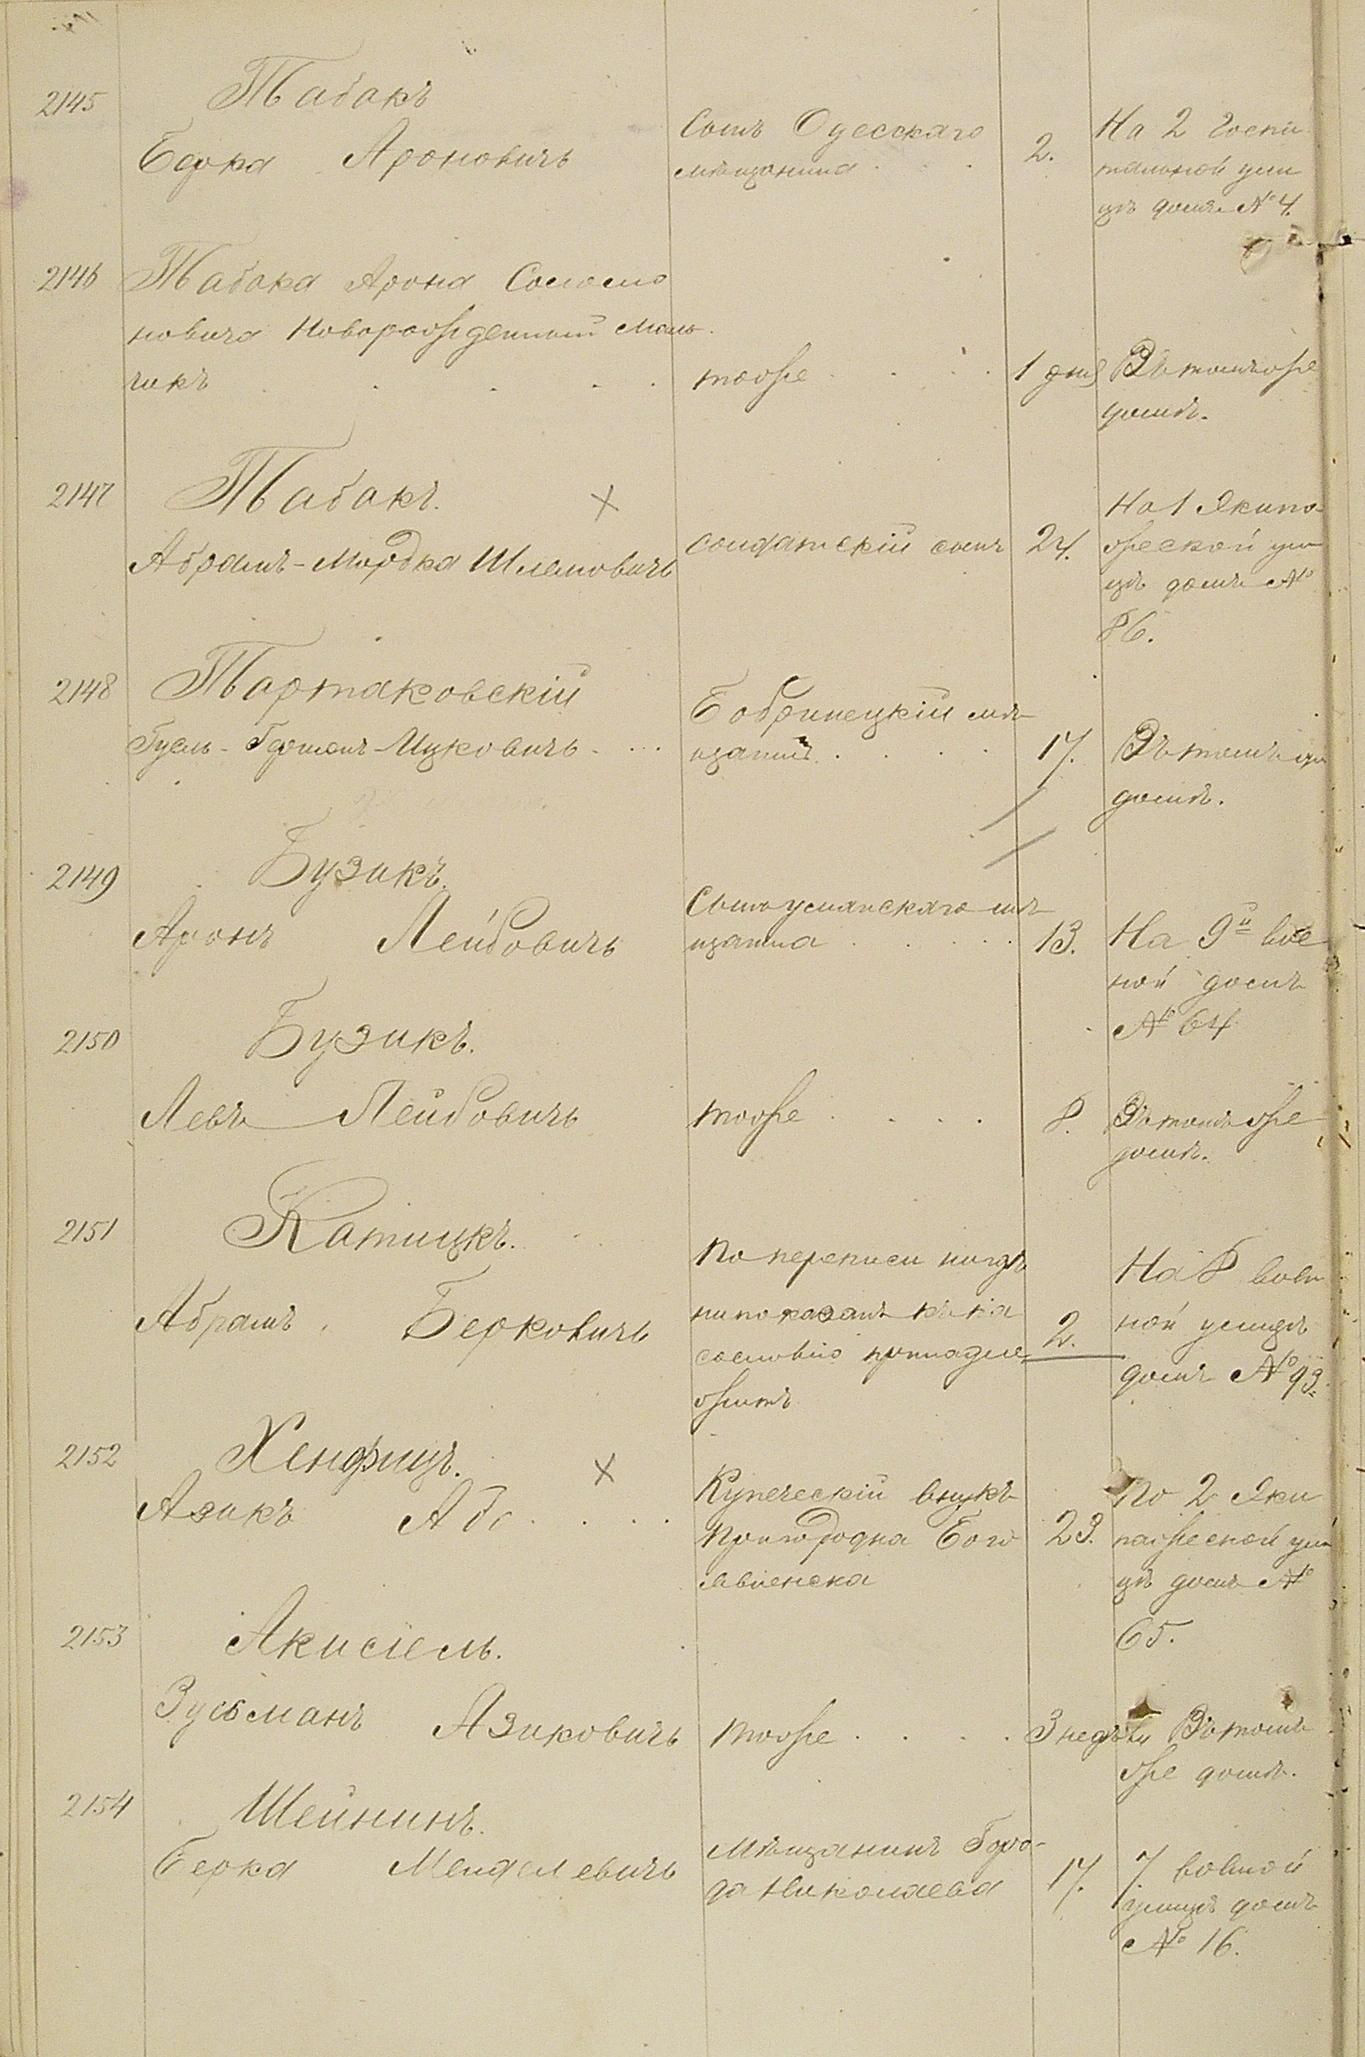 2145
Табакъ
Берка Ароновичъ
Сынъ Одесскаго
мѣщанина
2.
На 2 Госпи
тальной ули
цѣ домъ № 4.
2146
Табака Арона Соломо
новича Новорожденный маль
чикъ
тоже
1 дня
Въ томъ же
домѣ.
2147
Табакъ.
Абрамъ-Мордка Шлемовичъ
солдатскій сынъ
24.
На 1 Экипа
жеской ули
цѣ домъ №
86.
2148
Тартаковскій
Ицковичъ
Бобринецкій мѣ
щанинъ
17.
Въ томъ же
домѣ.
2149
Бузикъ.
Аронъ Лейбовичъ
Сынъ уманскаго мѣ
щанина
13.
На 9й вое
ной домъ
№ 64
2150
Бузикъ.
Левъ Лейбовичъ
тоже
8.
Въ томъ же
домѣ.
2151
Катицкъ.
Абрамъ Берковичъ
По переписи нигдѣ
непоказанъ къ ка
сословію принадле
житъ
2.
На 8 воен
ной улицѣ
домъ № 93.
2152
Хенфицъ.
Азикъ Аб
Купеческій внукъ
пригородка Бого
явленска
23.
По 2 Эки
пажеской ули
цѣ домъ №
65.
2153
Акисель.
Зусьманъ Азиковичъ
тоже
3 недѣли
Въ томъ
же домѣ.
2154
Шейнинъ.
Берка Менделевичъ
Мѣщанинъ Горо-
да Николаева
17.
7 военой
улицѣ домъ
№ 16.